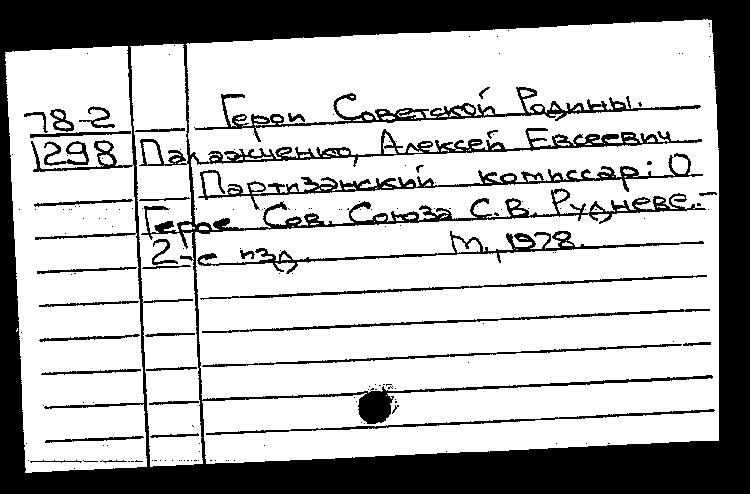 78-2 Герои Советской Родины.
1298 Палажченко, Алексей Евсеевич
Партизанский комиссар: О
Герое Сов. Союза С.В. Рудневе.-
2-е изд. М., 1978.